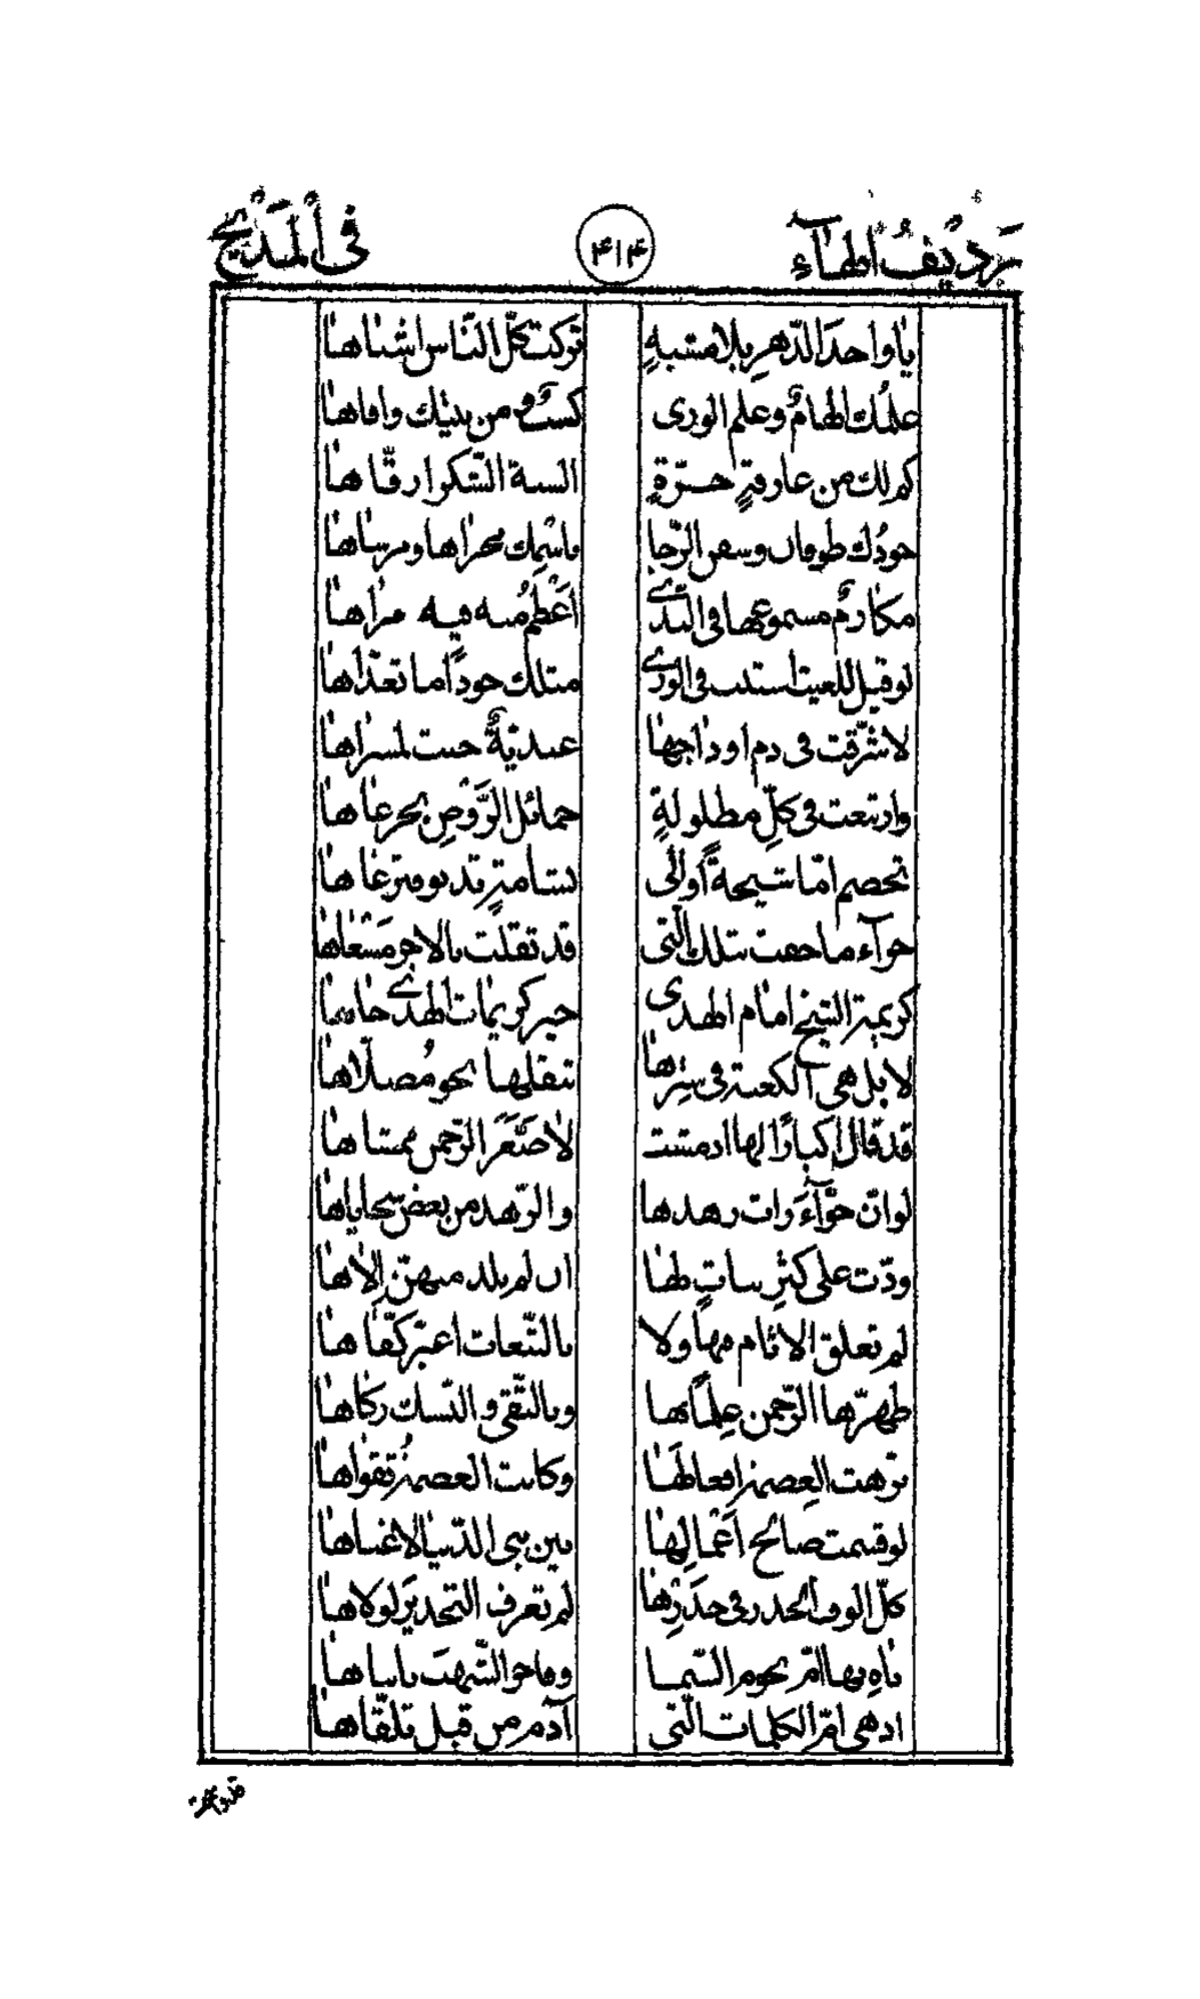 رَدِيْفُ الْهٰآءِ ۴۱۴ فِى الْمَدِيْحِ
يٰا واحدَ الدّهرِ بلا مشبهٍ تركت كلّ النّاس اشباهٰا
علمُك الهٰامٌ وعلم الورى كسبٌ و من بيتك وافاهٰا
كم لك من عارفةٍ حرّةٍ السنة الشكر ارقّاهٰا
جودُك طوفان وسفن الرّجا باسْمِك مجرٰاها ومرساهٰا
مكٰارمٌ مسموعها فى النّدى اَعْظمُ منه فيه مرٰاهٰا
لو قيل للغيث استنب فى الورى مثلك جودًا ما تعدّاهٰا
لا شرّقت فى دم اودٰاجهٰا عيديّةٌ حنت لمسرٰاهٰا
وارتبعت فى كلّ مطلولةٍ خمائل الرَّوْضِ بجرعٰاهٰا
تخصم امّا شيحةً أو الٰى بشامةٍ تدبو مترعٰاهٰا
حوآء ما خفت بتلك الّتى قد تقلت بالاجر مَسْعٰاهٰا
كريمة الشيخ امٰام الهدى خير كريمٰات الهدى جاها
لا بل هى الكعبة فى سترهٰا تنقلها نحو مُصلّاهٰا
قد قال اكبارًا لها اذ مشت لٰا صَغّرَ الرّحمن ممشاهٰا
لو انّ حوّآءَ رات زهدها والزهد من بعض سجاياهٰا
ودّت على كثرِ بناتٍ لهٰا ان لم يلد منهنّ إلّاهٰا
لم تعلق الاثام منها ولا بالتّبعات اغبرّ كفّاهٰا
طهّرها الرّحمن عِلمًا بها وبالتّقى والنّسك زكّاهٰا
نزهت العِصمة افعالَهٰا وكانت العصمةُ تقوٰاهٰا
لو قسمت صالح اَعْمٰالِهٰا بين بنى الدّنيا لاغناهٰا
كلّ الوف الخدر فى خدَرِهٰا لم تعرف التخدير لولاهٰا
بٰاهِ بها امّ نجوم السّمٰا وفاخر الشّهب بابناهٰا
اذ هى امّ الكلمات الّتى آدم من قبل تلقّاهٰا